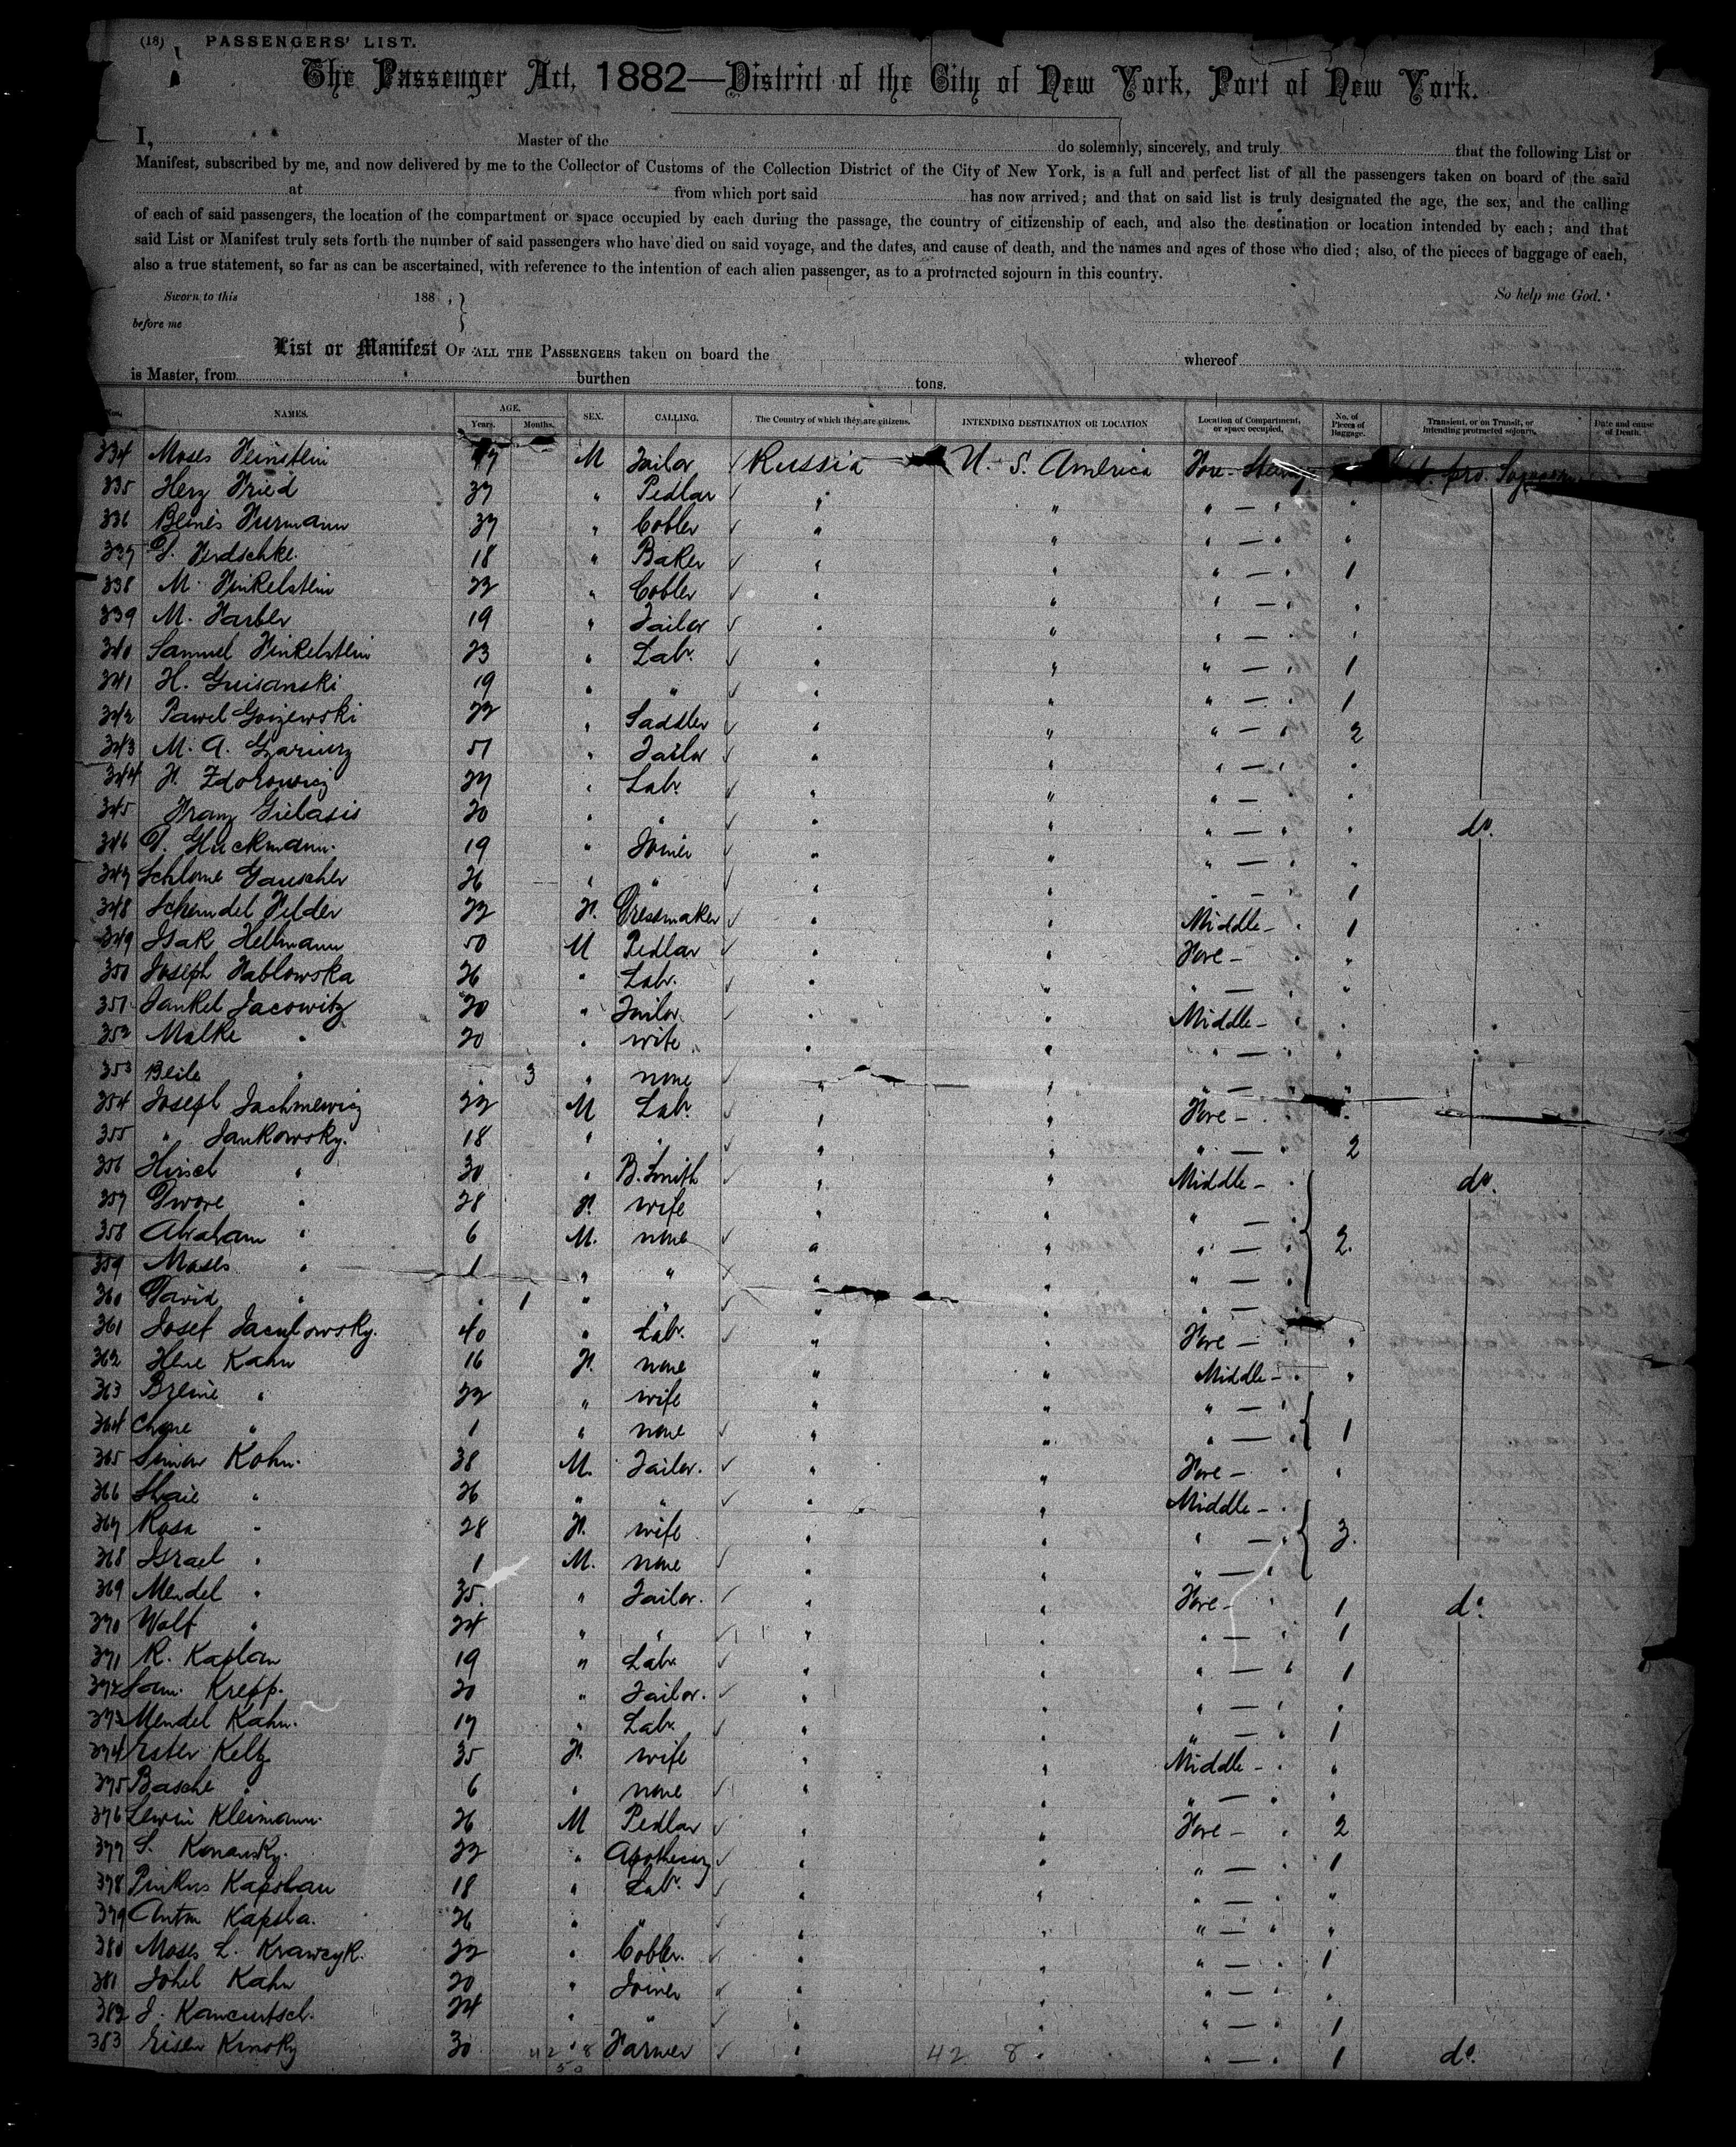 (18) PASSENGERS' LIST.
The Passenger Act, 1882—District of the City of New York, Port of New York.
I, Master of the do solemnly, sincerely, and truly that the following List or
Manifest, subscribed by me, and now delivered by me to the Collector of Customs of the Collection District of the City of New York, is a full and perfect list of all the passengers taken on board of the said
at from which port said has now arrived; and that on said list is truly designated the age, the sex, and the calling
of each of said passengers, the location of the compartment or space occupied by each during the passage, the country of citizenship of each, and also the destination or location intended by each; and that
said List or Manifest truly sets forth the number of said passengers who have died on said voyage, and the dates, and cause of death, and the names and ages of those who died; also, of the pieces of baggage of each,
also a true statement, so far as can be ascertained, with reference to the intention of each alien passenger, as to a protracted sojourn in this country.
Sworn to this 188 , } So help me God.
before me
List or Manifest OF ALL THE PASSENGERS taken on board the whereof
is Master, from burthen tons.
Nos. NAMES. AGE. Years. Months. SEX. CALLING. The Country of which they are citizens. INTENDING DESTINATION OR LOCATION Location of Compartment, or space occupied. No. of Pieces of Baggage. Transient, or on Transit, or intending protracted sojourn. Date and cause of Death.
334 Moses Feinstein M Tailor Russia U. S. America Fore pro.
335 Herz Fried 37 " Pedlar " " " — "
336 Furmann 37 " Cobler " " " — "
337 18 " Baker " " " — " 1
338 M. Finkelstein 22 " Cobler " " " — "
339 M. Farber 19 " Tailor " " " — "
340 Samuel Finkelstein 23 " Labr. " " " — " 1
341 H. 19 " " " " " — " 1
342 Pawel 22 " Saddler " " " — " 2
343 M. A. 51 " Tailor " " " — "
344 Zdorowicz 27 " Labr. " " " — "
345 Franz 20 " " " " " — " " do.
346 Gluckmann. 19 " Joiner " " " — "
347 Schlome 26 " " " " " — " 1
348 22 F. Dressmaker " " Middle — " 1
349 Isak Hellmann 50 M Pedlar " " Fore — "
350 Joseph Jablowska 26 " Labr. " " " — "
351 Jankel Jacowitz 20 " Tailor " " Middle — "
352 Malke " 20 " wife " " " — "
353 Beile " 3 " none " " " — "
354 Joseph 22 M Labr. " " Fore — "
355 " Jankowsky. 18 " " " " " — " 2
356 Hirsch " 30 " B. Smith " " Middle — " do.
357 Dwore " 28 F. wife " " " — "
358 Abraham " 6 M. none " " " — " 2.
359 Moses " 1 " " " " " — "
360 David " 1 " " " " " — "
361 Josef 40 " Labr. " " Fore — "
362 Kahn 16 F. none " " Middle — "
363 Breine " 22 " wife " " " — "
364 " 1 " none " " " — " 1
365 Simon Kohn. 38 M. Tailor. " " Fore — "
366 " 26 " " " " Middle — "
367 Rosa " 28 F. wife " " " — " 3.
368 Israel " 1 M. none " " " — "
369 Mendel " 35. " Tailor. " " Fore — " 1 do.
370 Wolf " 24 " " " " " — " 1
371 R. Kaplan 19 " Labr. " " " — " 1
372 Sam. Krepp. 20 " Tailor. " " " — "
373 Mendel Kahn. 17 " Labr. " " " — " 1
374 Ester Keltz 35 F. wife " " Middle — "
375 Basche " 6 " none " " " — "
376 Lewin Kleimann. 26 M Pedlar " " Fore — " 2
377 S. 22 " Apothecary " " " — " 1
378 Pinkus Kapshan 18 " Labr. " " " — "
379 Anton Kapsha. 26 " " " " " — "
380 Moses L. Krawczyk. 22 " Cobler. " " " — " 1
381 Kahn 20 " Joiner " " " — "
382 24 " " " " " — " 1
383 30 " Farmer " " " — " 1 do.
42 8 42 8
50